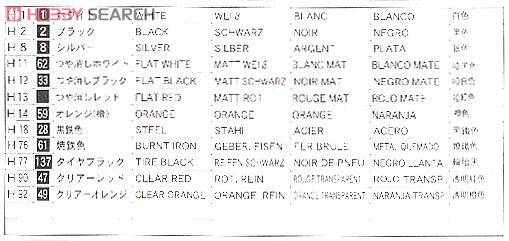 HOBBY SEARCH
H 1 1 WHITE WEIß BLANC BLANCO 白色
H 2 2 ブラック BLACK SCHWARZ NOIR NEGRO 黒色
H 8 8 シルバー SILVER SILBER ARGENT PLATA 銀色
H 11 62 つや消しホワイト FLAT WHITE MATT WEIß BLANC MAT BLANCO MATE
H 12 33 つや消しブラック FLAT BLACK MATT SCHWARZ NOIR MAT NEGRO MATE
H 13 つや消しレッド FLAT RED MATT ROT ROUGE MAT ROJO MATE
H 14 59 オレンジ(橙) ORANGE ORANGE ORANGE NARANJA 橙色
H 18 28 黒鉄色 STEEL STAHL ACIER ACERO 黒鉄色
H 76 61 焼鉄色 BURNT IRON GEBER. EISEN FER BRULE METAL QUEMADO 焼鉄色
H 77 137 タイヤブラック TIRE BLACK REIFEN SCHWARZ NOIR DE PNEU NEGRO LLANTA
H 90 47 クリアーレッド CLEAR RED ROT. REIN ROUGE TRANSPARENT ROJO TRANSP. 透明紅色
H 92 49 クリアーオレンジ CLEAR ORANGE ORANGE. REIN ORANGE TRANSPARENT NARANJA TRANSP 透明橙色